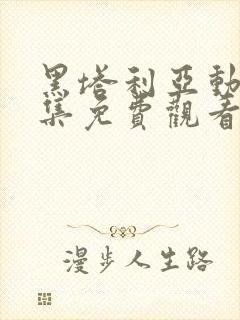 黑塔利亞動
集免費觀看
漫步人生路